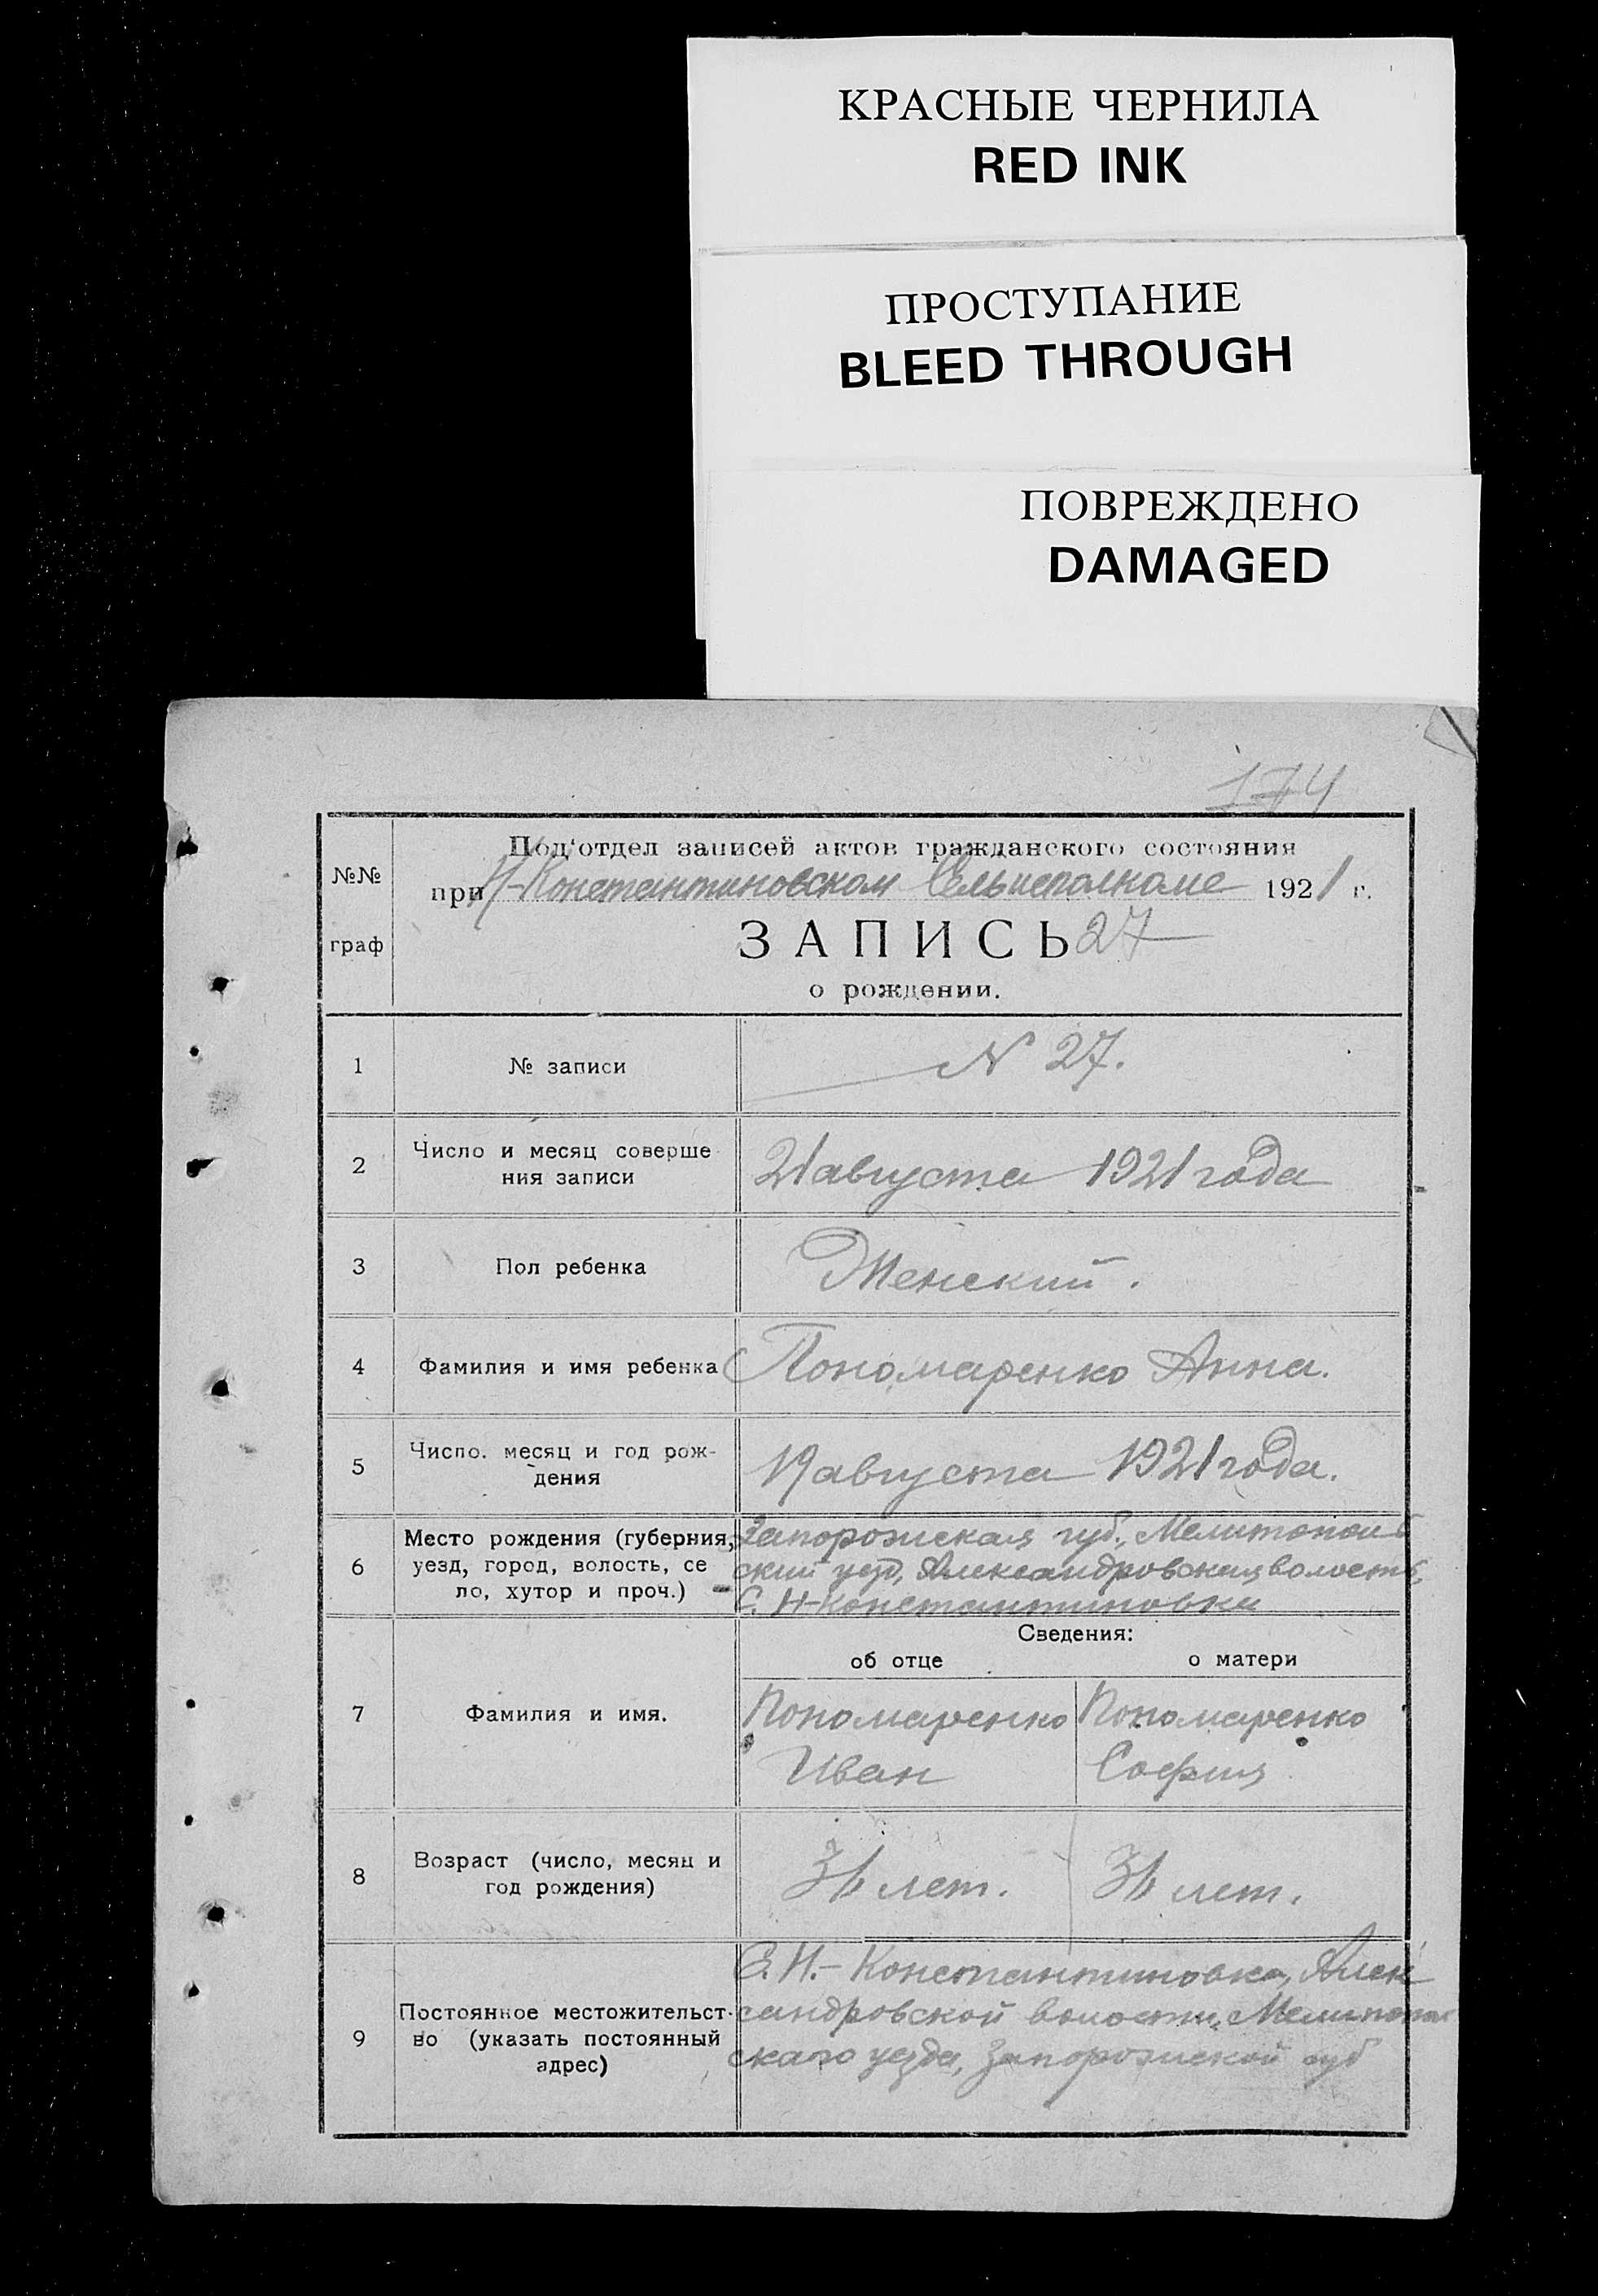 КРАСНЫЕ ЧЕРНИЛА
RED INK
ПРОСТУПАНИЕ
BLEED THROUGH
ПОВРЕЖДЕНО
DAMAGED
174
№№
граф
Под'отдел записей актов гражданского состояния
при Н-Константиновском Сельисполкоме 1921 г.
ЗАПИСЬ 27
о рождении.
1
№ записи
N 27.
2
Число и месяц соверше
ния записи
21 августа 1921 года
3
Пол ребенка
Женский.
4
Фамилия и имя ребенка
Пономаренко Анна.
5
Число. месяц и год рож-
дения
19 августа 1921 года.
6
Место рождения (губерния,
уезд, город, волость, се
ло, хутор и проч.)
Запорожская губ., Мелитополь
ский уезд, Александровская волость,
С. Н-Константиновка
Сведения:
об отце
о матери
7
Фамилия и имя.
Пономаренко
Иван
Пономаренко
София
8
Возраст (число, месяц и
год рождения)
лет.
лет.
9
Постоянное местожительст-
во (указать постоянный
адрес)
С. Н.-Константиновка, Алек
сандровской волости, Мелитополь
скаго уезда, Запорожской губ